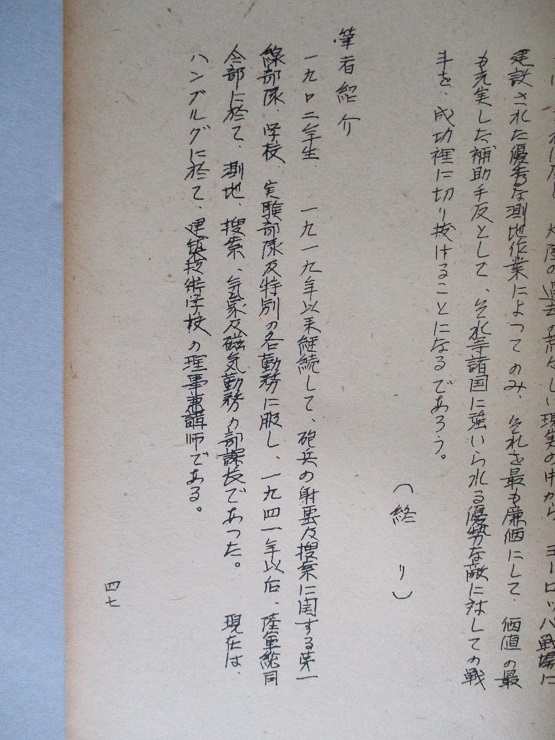 過去の荒々しい現実の中から ヨーロッパ戦場に
建設された優秀な測地作業によつてのみ、それを最も廉価にして、価値の最
も充実した補助手段として、それ等諸国に強いられる優勢な敵に対しての戦
斗を、成功裡に切り抜けることになるであろう。
（終り）
筆者紹介
一九〇二年生 一九一九年以来継続して、砲兵の射撃及捜索に関する第一
線部隊、学校、実験部隊及特別の各勤務に服し、一九四一年以后、陸軍総司
令部に於て、測地、捜索、気象及磁気勤務の部課長であつた。 現在は、
ハンブルグに於て、建築技術学校の理事兼講師である。
四七